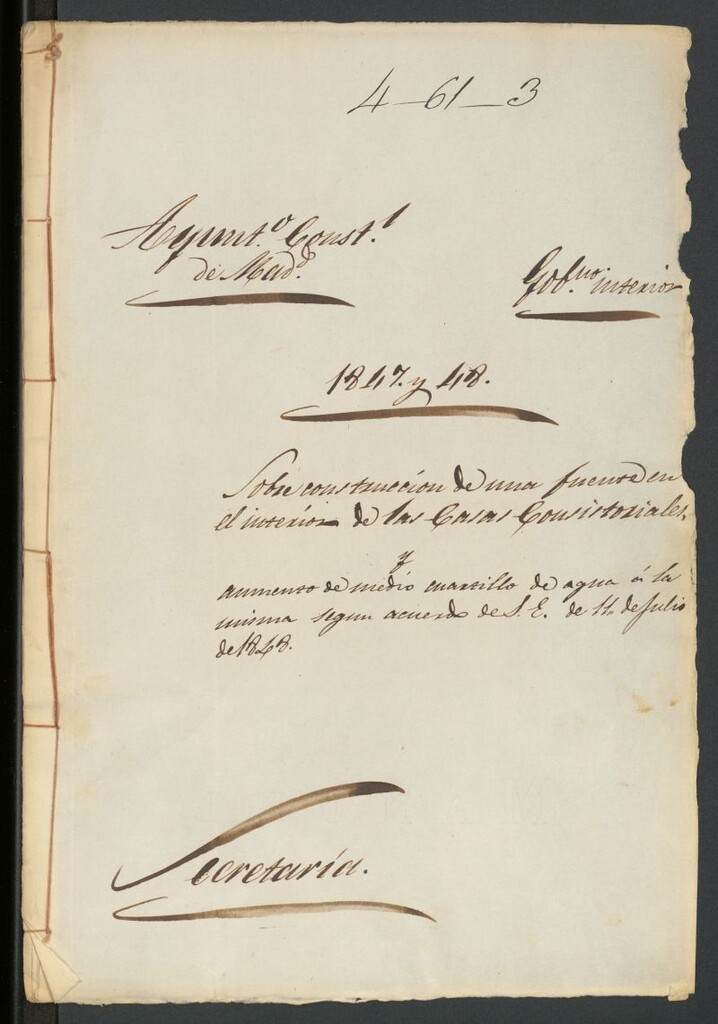 4-61-3
Ayunt.º Const.l
de Mad.d
Gob.no interior
1847. y 48.
Sobre construccion de una fuente en
el interior de las Casas Consistoriales,
y
aumento de medio cuartillo de agua á la
misma segun acuerdo de S. E. de 11. de Julio
de 1848.
Secretaría.